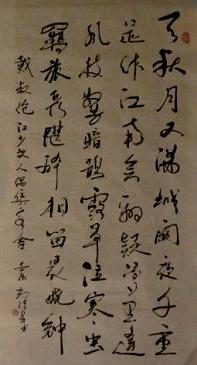 天秋月又满城闕夜千重
还作江南会翻疑梦里逢
风枝驚暗鵲露草泣寒虫
羈旅长堪醉相留畏晓钟
戴叔伦江乡故人偶集客舍